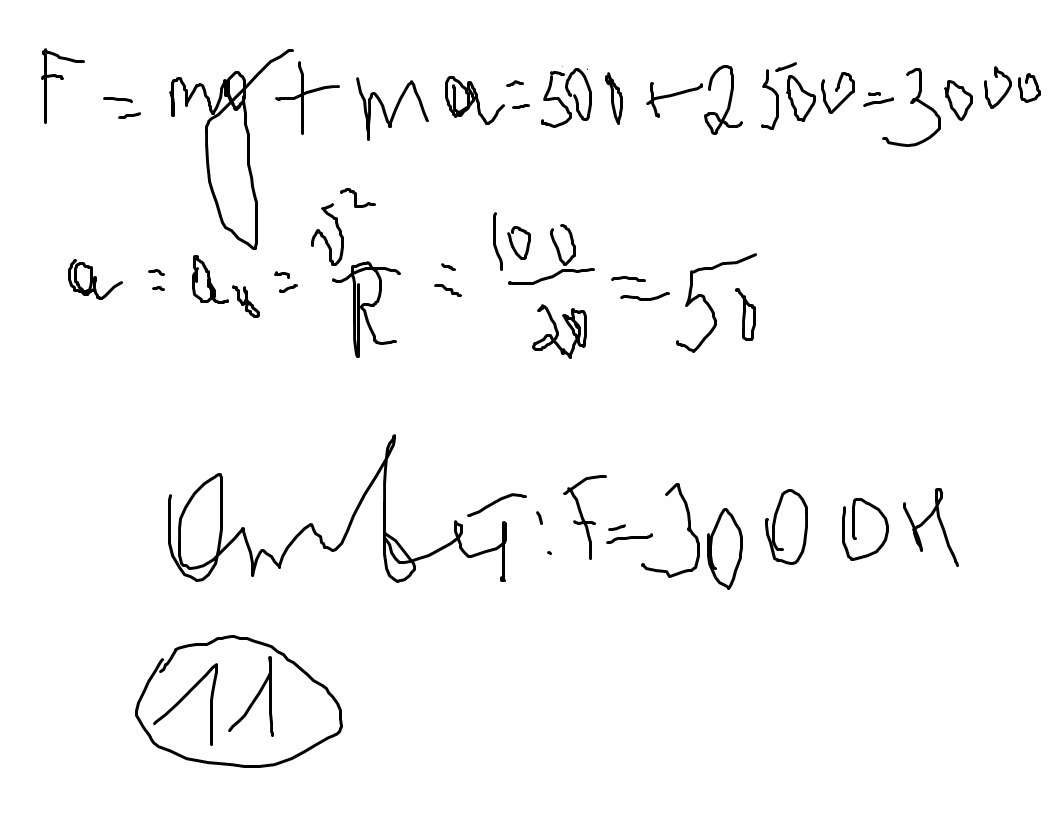 F = mg + ma = 500 + 2500 = 3000
a = aц = v²/R = 100/20 = 50
Ответ: F = 3000 Н
11